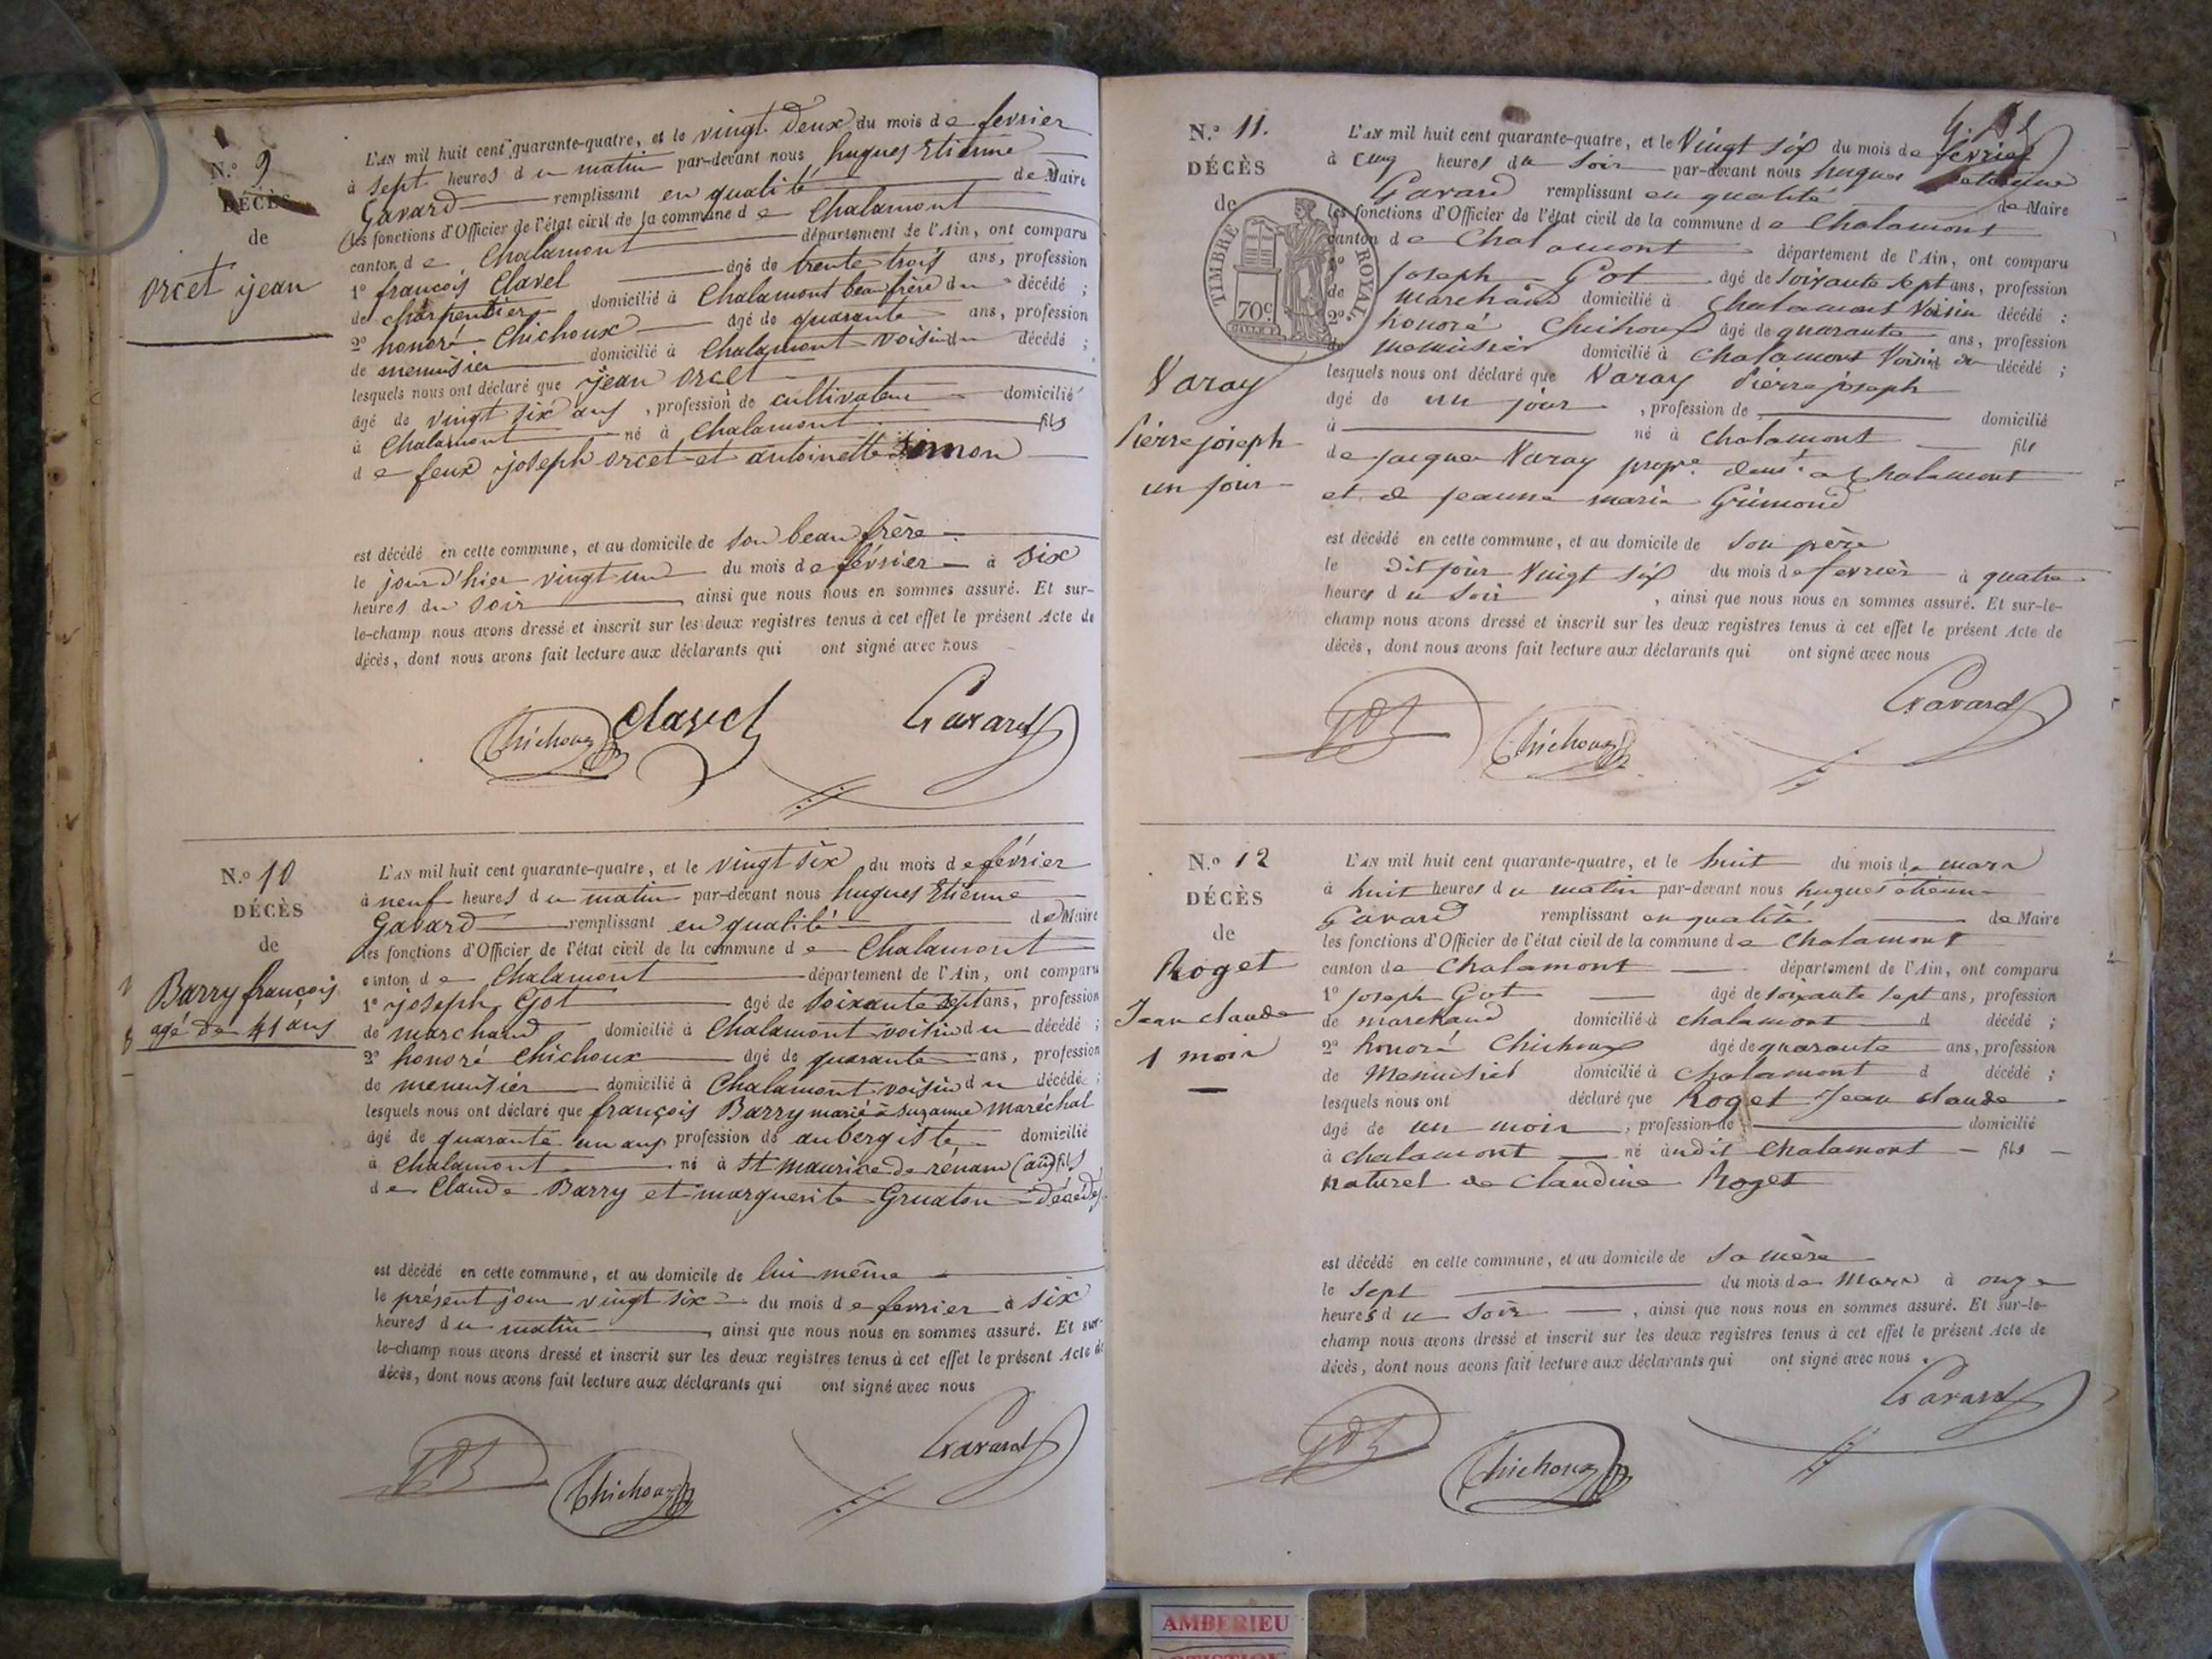 N.o 9
DÉCÈS
de
orcet jean
L'AN mil huit cent quarante-quatre, et le vingt deux du mois de fevrier
à sept heures du matin par-devant nous hugues Etienne
Gavard remplissant en qualité de Maire
les fonctions d'Officier de l'état civil de la commune de Chalamont
canton de Chalamont département de l'Ain, ont comparu
1o françois Clavel âgé de trente trois ans, profession
de charpentier domicilié à Chalamont beau frère du décédé ;
2o honoré Chichoux âgé de quarante ans, profession
de menuisier domicilié à Chalamont voisin du décédé ;
lesquels nous ont déclaré que jean orcet
âgé de vingt six ans, profession de cultivateur domicilié
à Chalamont né à Chalamont fils
de feux joseph orcet et antoinette simon
est décédé en cette commune, et au domicile de son beau frère
le jour d'hier vingt un du mois de février à six
heures du soir ainsi que nous nous en sommes assuré. Et sur-
le-champ nous avons dressé et inscrit sur les deux registres tenus à cet effet le présent Acte de
décès, dont nous avons fait lecture aux déclarants qui ont signé avec nous
Chichoux Clavel Gavard
N.o 10
DÉCÈS
de
Barry françois
agé de 41 ans
L'AN mil huit cent quarante-quatre, et le vingt six du mois de février
à neuf heures du matin par-devant nous hugues Etienne
Gavard remplissant en qualité de Maire
les fonctions d'Officier de l'état civil de la commune de Chalamont
canton de Chalamont département de l'Ain, ont comparu
1o joseph Got âgé de soixante sept ans, profession
de marchand domicilié à Chalamont voisin du décédé ;
2o honoré Chichoux âgé de quarante ans, profession
de menuisier domicilié à Chalamont voisin du décédé ;
lesquels nous ont déclaré que françois Barry marié à suzanne maréchal
âgé de quarante un ans profession de aubergiste domicilié
à Chalamont né à St maurice de rémans (ain) fils
de Claude Barry et marguerite Gruaton décédés
est décédé en cette commune, et au domicile de lui même
le présent jour vingt six du mois de fevrier à six
heures du matin, ainsi que nous nous en sommes assuré. Et sur-
le-champ nous avons dressé et inscrit sur les deux registres tenus à cet effet le présent Acte de
décès, dont nous avons fait lecture aux déclarants qui ont signé avec nous
Got Chichoux Gavard
N.o 11.
DÉCÈS
de
TIMBRE ROYAL
70c
Varay
Pierre joseph
un jour
L'AN mil huit cent quarante-quatre, et le Vingt six du mois de fevrier
à cinq heures du soir par-devant nous hugues
Gavard remplissant en qualité de Maire
les fonctions d'Officier de l'état civil de la commune de Chalamont
canton de Chalamont département de l'Ain, ont comparu
1o Joseph Got âgé de soixante sept ans, profession
de marchand domicilié à Chalamont Voisin décédé ;
2o honoré Chichoux âgé de quarante ans, profession
de menuisier domicilié à Chalamont Voisin du décédé ;
lesquels nous ont déclaré que Varay Pierre joseph
âgé de un jour, profession de domicilié
à né à Chalamont fils
de jacques Varay propre demt. a Chalamont
et de jeanne marie Grimond
est décédé en cette commune, et au domicile de son père
le dit jour Vingt six du mois de fevrier à quatre
heures du soir, ainsi que nous nous en sommes assuré. Et sur-le-
champ nous avons dressé et inscrit sur les deux registres tenus à cet effet le présent Acte de
décès, dont nous avons fait lecture aux déclarants qui ont signé avec nous
Got Chichoux Gavard
N.o 12
DÉCÈS
de
Roget
Jean claude
1 mois
L'AN mil huit cent quarante-quatre, et le huit du mois de mars
à huit heures du matin par-devant nous hugues étienne
Gavard remplissant en qualité de Maire
les fonctions d'Officier de l'état civil de la commune de Chalamont
canton de Chalamont département de l'Ain, ont comparu
1o Joseph Got âgé de soixante sept ans, profession
de marchand domicilié à Chalamont d décédé ;
2o honoré Chichoux âgé de quarante ans, profession
de Menuisier domicilié à Chalamont d décédé ;
lesquels nous ont déclaré que Roget Jean claude
âgé de un mois, profession de domicilié
à chalamont né audit Chalamont fils
naturel de Claudine Roget
est décédé en cette commune, et au domicile de sa mère
le sept du mois de Mars à onze
heures du soir, ainsi que nous nous en sommes assuré. Et sur-le-
champ nous avons dressé et inscrit sur les deux registres tenus à cet effet le présent Acte de
décès, dont nous avons fait lecture aux déclarants qui ont signé avec nous.
Got Chichoux Gavard
AMBERIEU